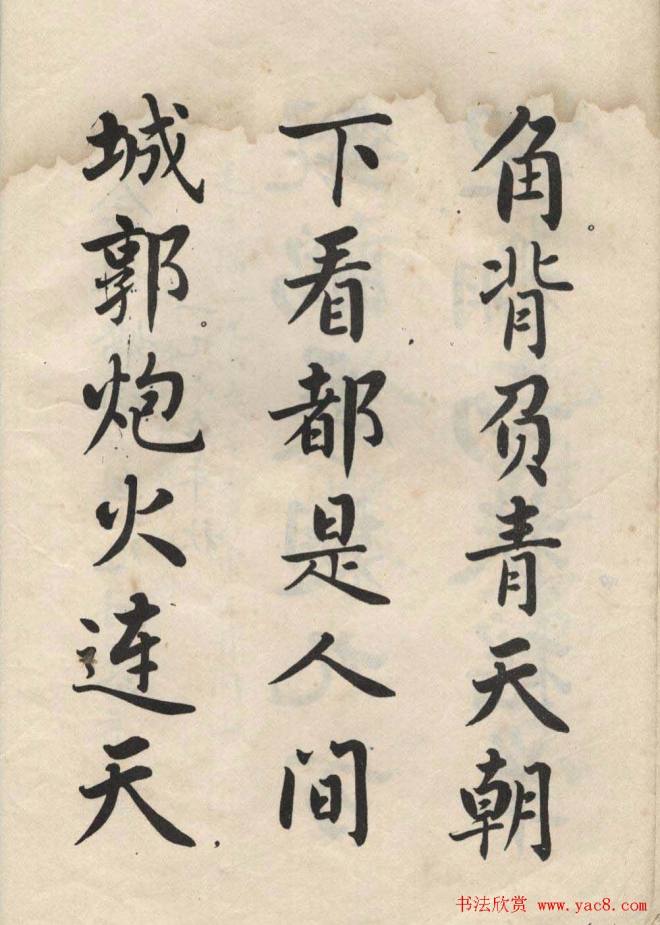 角。背负青天朝
下看都是人间
城郭。炮火连天
书法欣赏 www.yac8.com